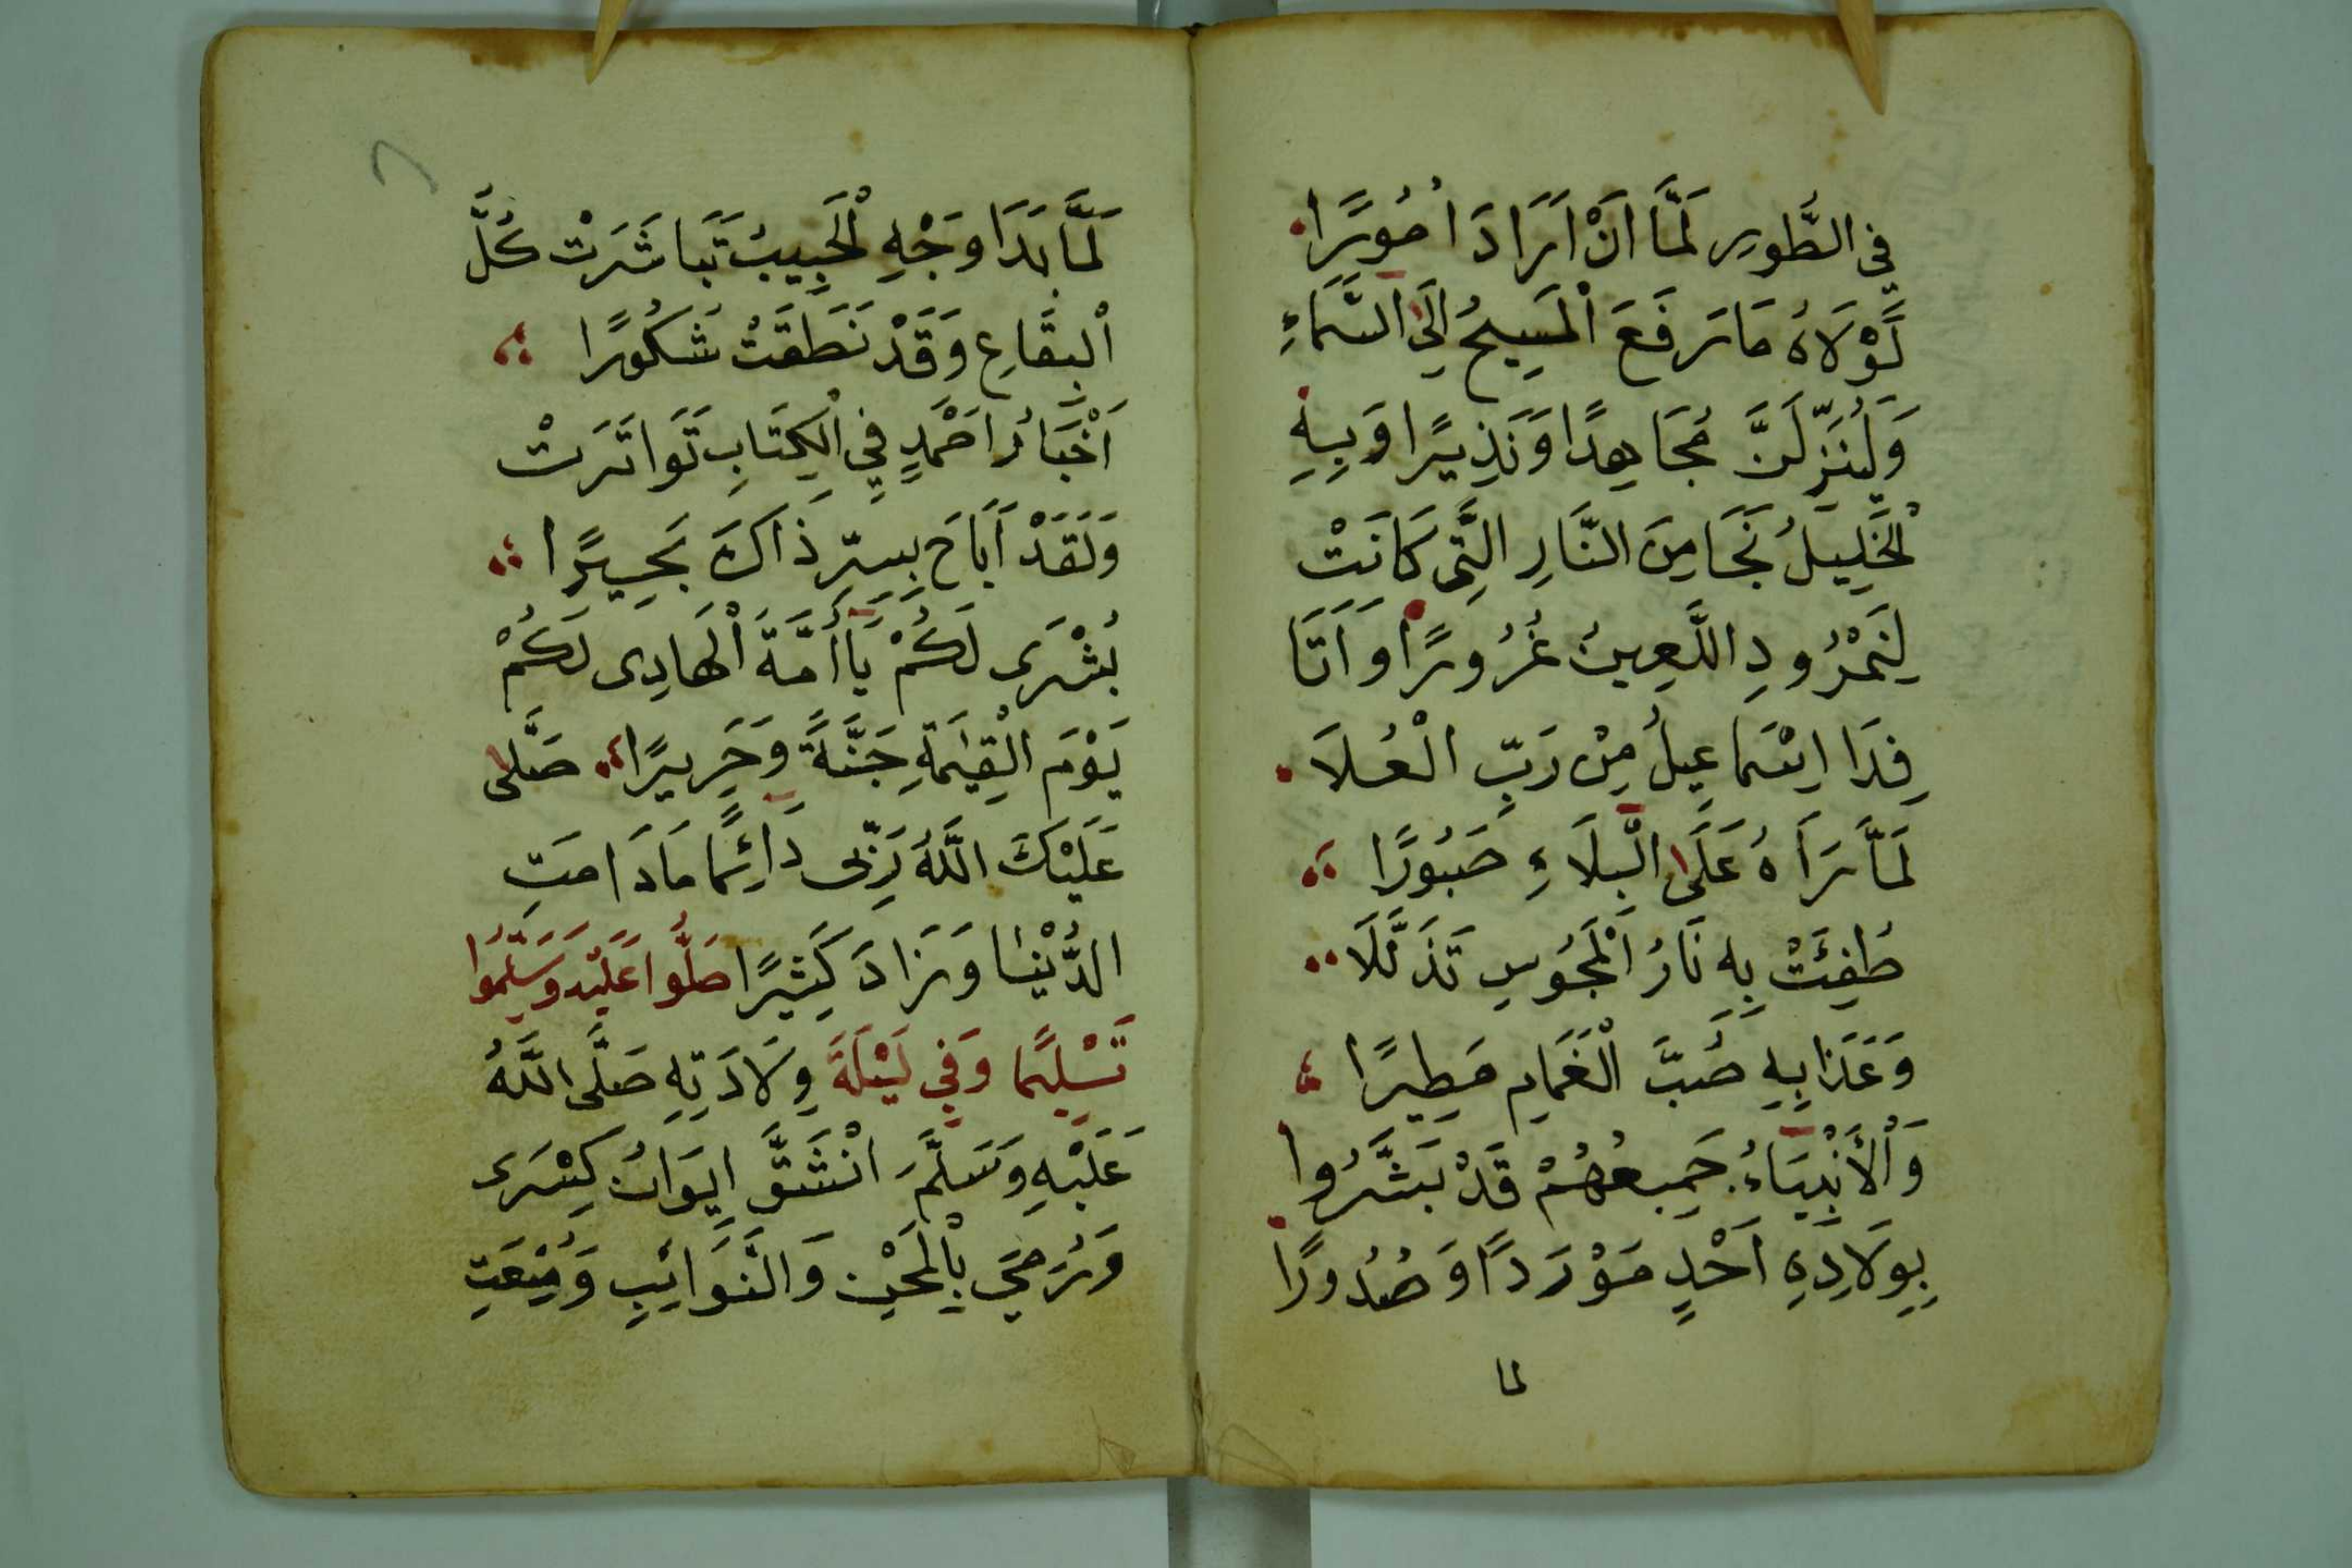 في الطُّورِ لَمَّا اَنْ اَرَادَ اُمُورًا
لَوْلَاهُ مَا رَفَعَ الْمَسِيحُ اِلَى السَّمَاءِ
وَلَيُنَزِّلَنَّ مُجَاهِدًا وَنَذِيرًا وَبِهِ
الْخَلِيلُ نَجَا مِنَ النَّارِ الَّتِى كَانَتْ
لِنَمْرُودِ اللَّعِينُ غُرُورًا وَاَتَا
فِدَا اِسْمَاعِيلُ مِنْ رَبِّ الْعُلَا
لَمَّا رَاَهُ عَلَى الْبِلَاءِ صَبُورًا
طُفِئَتْ بِهِ نَارُ الْمَجُوسِ تَذَلُّلَا
وَغَدَا بِهِ صُبَّ الْغَمَامِ مَطِيرًا
وَالْأَنْبِيَاءُ جَمِيعُهُمْ قَدْ بَشَّرُوا
بِوِلَادِهِ اَحْمَدٍ مَوْرَدًا وَصُدُورًا
لما
لَمَّا بَدَا وَجْهِ الْحَبِيبُ تَبَاشَرَتْ كُلَّ
الْبِقَاعِ وَقَدْ نَطَقَتْ شَكُورًا
اَخْبَارُ اَحْمَدٍ فِي الْكِتَابِ تَوَاتَرَتْ
وَلَقَدْ اَبَاحَ بِسِرِّ ذَاكَ بَحِيرًا
بُشْرَى لَكُمْ يَا أُمَّةَ الْهَادِى لَكُمْ
يَوْمَ الْقِيٰمَةِ جَنَّةً وَحَرِيرًا صَلَّى
عَلَيْكَ اللَّهُ رَبِّى دَائِمًا مَا دَامَتِ
الدُّنْيَا وَزَادَ كَثِيرًا صَلُّوا عَلَيْهِ وَسَلِّمُوا
تَسْلِيمًا وَفِي لَيْلَةَ وِلَادَتِهِ صَلَّى اللَّهُ
عَلَيْهِ وَسَلَّمَ انْشَقَّ اِيوَانُ كِسْرَى
وَرُمِيَ بِالْمَحْنِ وَالنَّوَائِبِ وَمُنِعَتِ